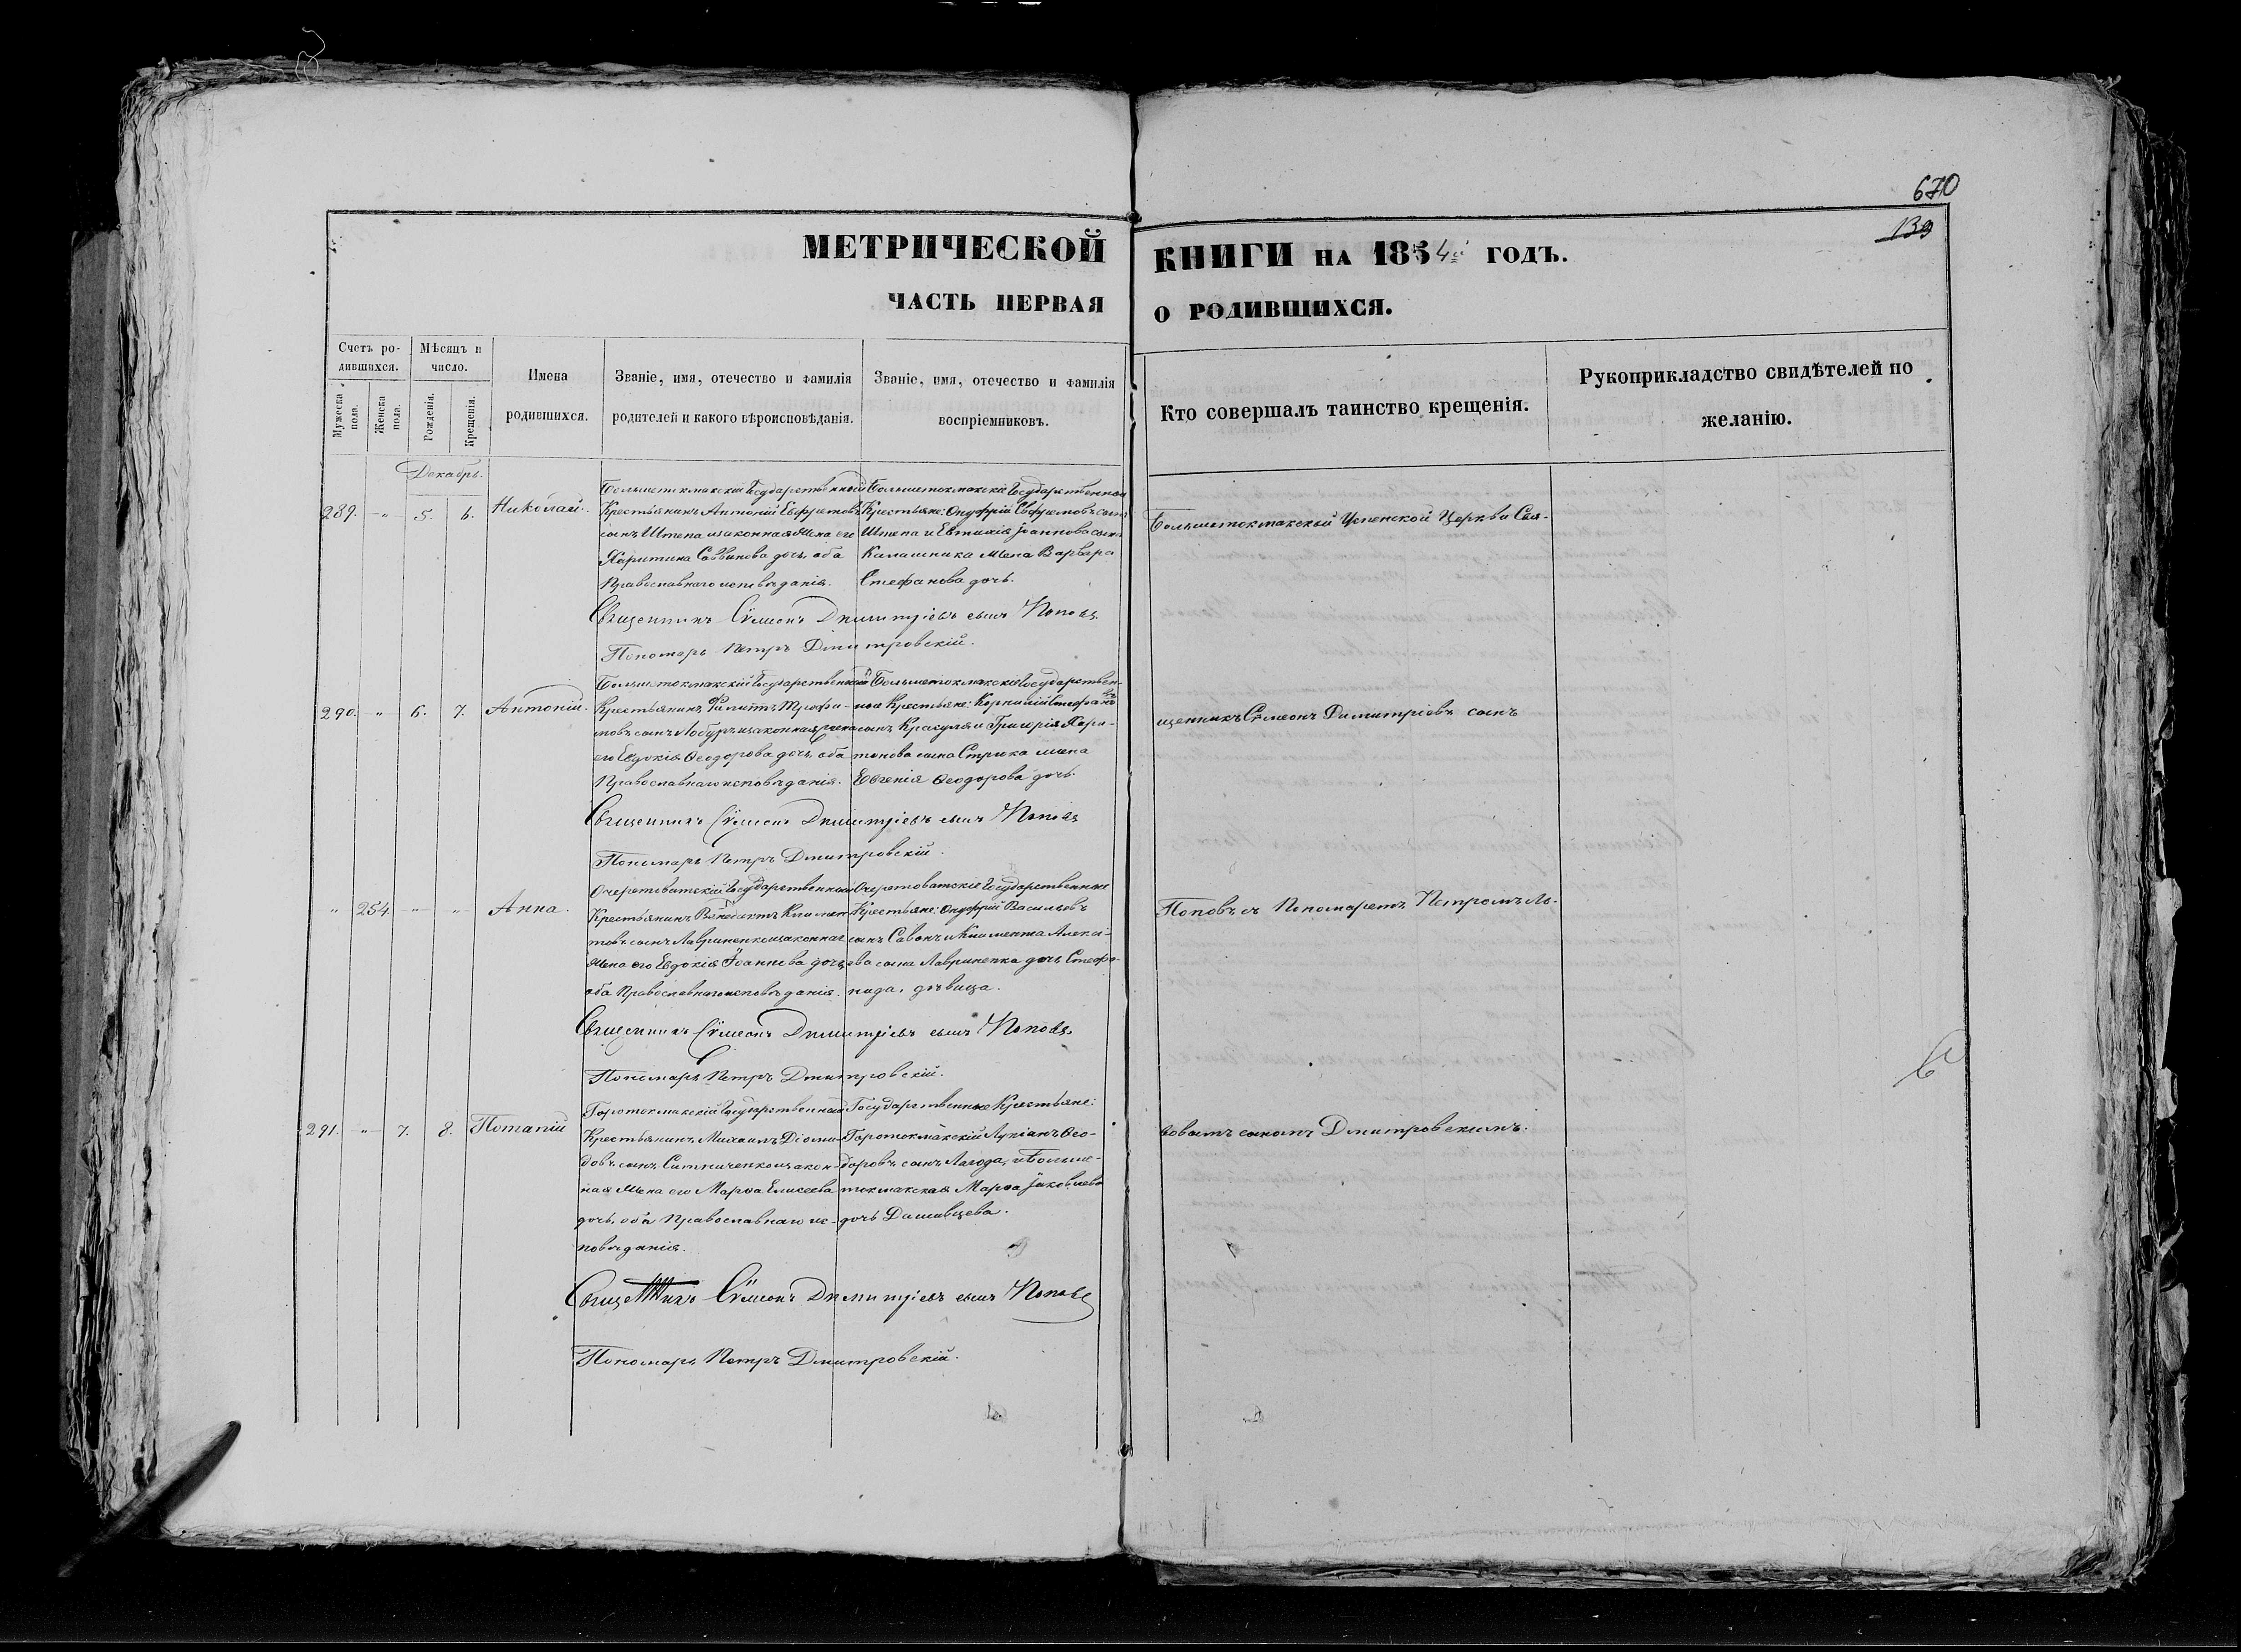 670
139
МЕТРИЧЕСКОЙ КНИГИ НА 1854й ГОДЪ.
ЧАСТЬ ПЕРВАЯ О РОДИВШИХСЯ.
Счетъ ро-
дившихся.
Мужеска пола.
Женска пола.
Мѣсяцъ и
число.
Рожденія.
Крещенія.
Имена
родившихся.
Званіе, имя, отечество и фамилія
родителей и какого вѣроисповѣданія.
Званіе, имя, отечество и фамилія
воспріемниковъ.
Кто совершалъ таинство крещенія.
Рукоприкладство свидѣтелей по
желанію.
Декабрь.
289. -"- 5. 6. Николай.
Большетокмакскій Государственный
Крестьянинъ Антоній Евфимовъ
сынъ Штепа и законная жена его
Харитина Саввинова дочь, оба
Православнаго исповѣданія.
Большетокмакскіе Государственные
Крестьяне: Онуфрій Евфимовъ сынъ
Штепа и Евтихія Іоаннова сына
Калашника жена Варвара
Стефанова дочь.
Священникъ Сѵмеонъ Димитріевъ сынъ Поповъ
Пономарь Петръ Дмитровскій.
290. " 6. 7. Антоній.
Большетокмакскій Государственный
Крестьянинъ Филиппъ Трофи-
мовъ сынъ и законная жена
его Евдокія Ѳеодорова дочь, оба
Православнаго исповѣданія.
Большетокмакскіе Государствен-
ные Крестьяне: Корнилій Стефановъ
сынъ Красуля и Григорія Хари-
тонова сына Стрика жена
Евгенія Ѳеодорова дочь.
Священникъ Сѵмеонъ Димитріевъ сынъ Поповъ
Пономарь Петръ Дмитровскій.
" 254. -"- -"- Анна.
Очеретоватскій Государственный
Крестьянинъ Венедиктъ Климен-
товъ сынъ Лавриненко и законная
жена его Евдокія Іоаннова дочь,
оба Православнаго исповѣданія.
Очеретоватскіе Государственные
Крестьяне: Онуфрій Васильевъ
сынъ Савонъ и Климента Алексі-
ева сына Лавриненка дочь Стефа-
нида, дѣвица.
Священникъ Сѵмеонъ Димитріевъ сынъ Поповъ
Пономарь Петръ Дмитровскій.
291. -"- 7. 8. Потапій
Государственный
Крестьянинъ Михаилъ Діоми-
довъ сынъ Ситниченко и закон-
ная жена его Марѳа Елисеева
дочь, оба Православнаго ис-
повѣданія.
Государственные Крестьяне:
Лукіанъ Ѳео-
доровъ сынъ Лагода, и Больше-
токмакская Марѳа Іаковлева
дочь
Священникъ Сѵмеонъ Димитріевъ сынъ Поповъ
Пономарь Петръ Дмитровскій.
Большетокмакской Успенской Церкви Свя-
щенникъ Сѵмеонъ Димитріевъ сынъ
Поповъ съ Пономаремъ Петромъ Ль-
вовымъ сыномъ Дмитровскимъ.